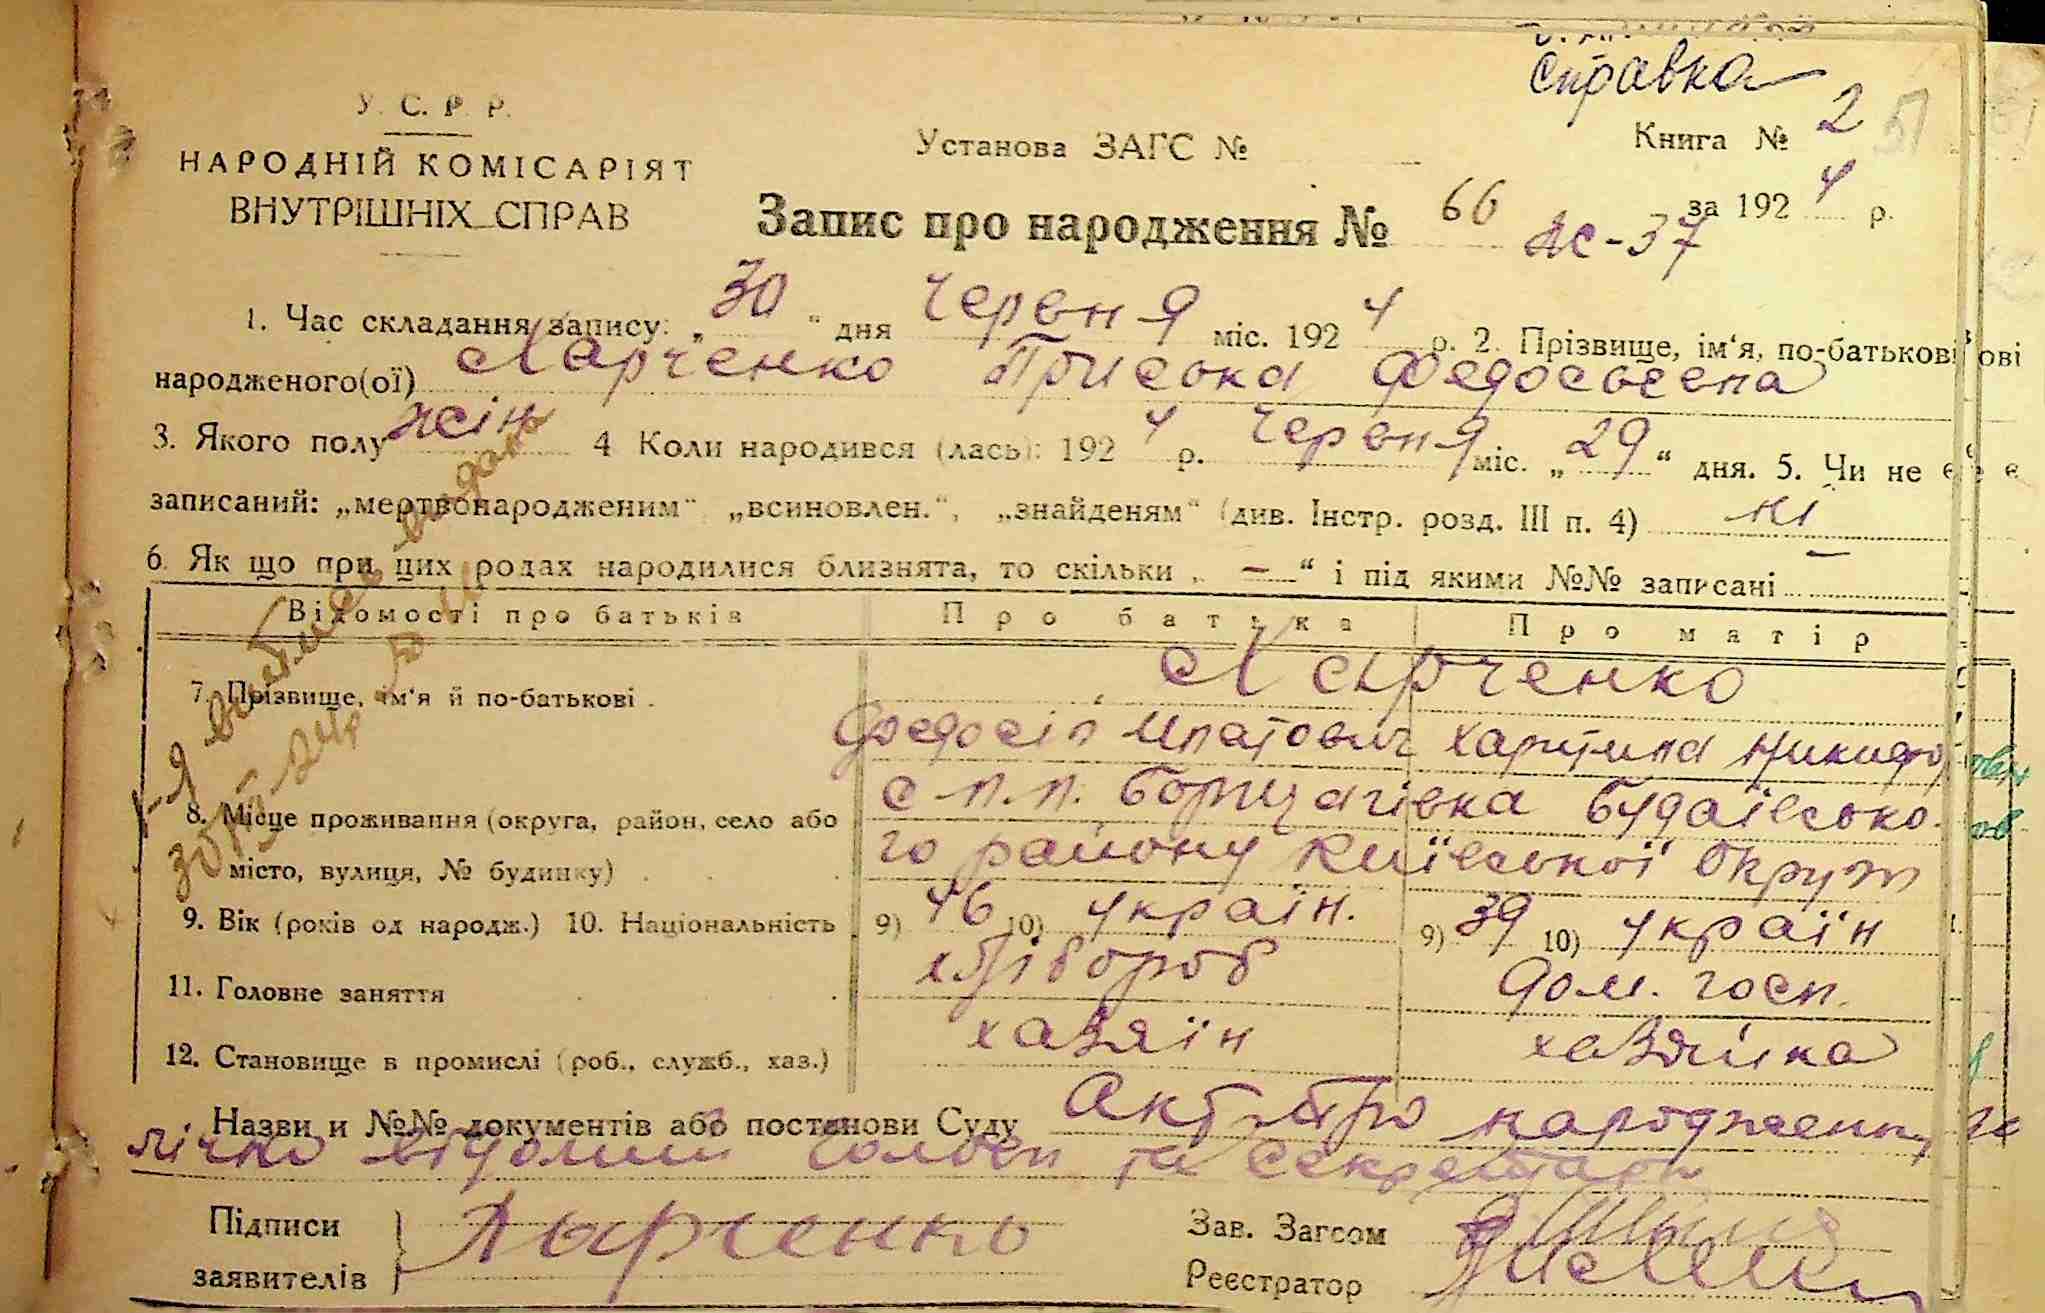 Справка
У. С. Р. Р.
НАРОДНІЙ КОМІСАРІЯТ
ВНУТРІШНІХ СПРАВ
Установа ЗАГС №
Книга № 2 51
за 1924 р.
Запис про народження № 66
АС-37
1. Час складання запису: „30“ дня Червня міс. 1924 р. 2. Прізвище, ім‘я, по-батькові
народженого(ої) Ларченко Приська Федосьевна
3. Якого полу жін 4 Коли народився (лась): 1924 р. Червня міс. „29“ дня. 5. Чи не є
записаний: „мертвонародженим“ „всиновлен.“, „знайденям“ (див. Інстр. розд. III п. 4) ні
6. Як що при цих родах народилися близнята, то скільки „ — “ і під якими №№ записані —
Відомості про батьків Про батька Про матір
7. Прізвище, ім‘я й по-батькові Ларченко
Федосій Ипатович Харитина Никифо
8. Місце проживання (округа, район, село або с П.П. Борщагівка Будаівсько-
місто, вулиця, № будинку) го району Київської Округи
9. Вік (років од народж.) 10. Національність 9) 46 10) україн. 9) 39 10) україн
11. Головне заняття хлібороб дом. госп.
12. Становище в промислі (роб., служб., хаз.) хазяїн хазяйка
Назви и №№ документів або постанови Суду Акт про народження
лічно відомий голови та секретаря
Підписи
заявителів
Ларченко
Зав. Загсом
Реєстратор